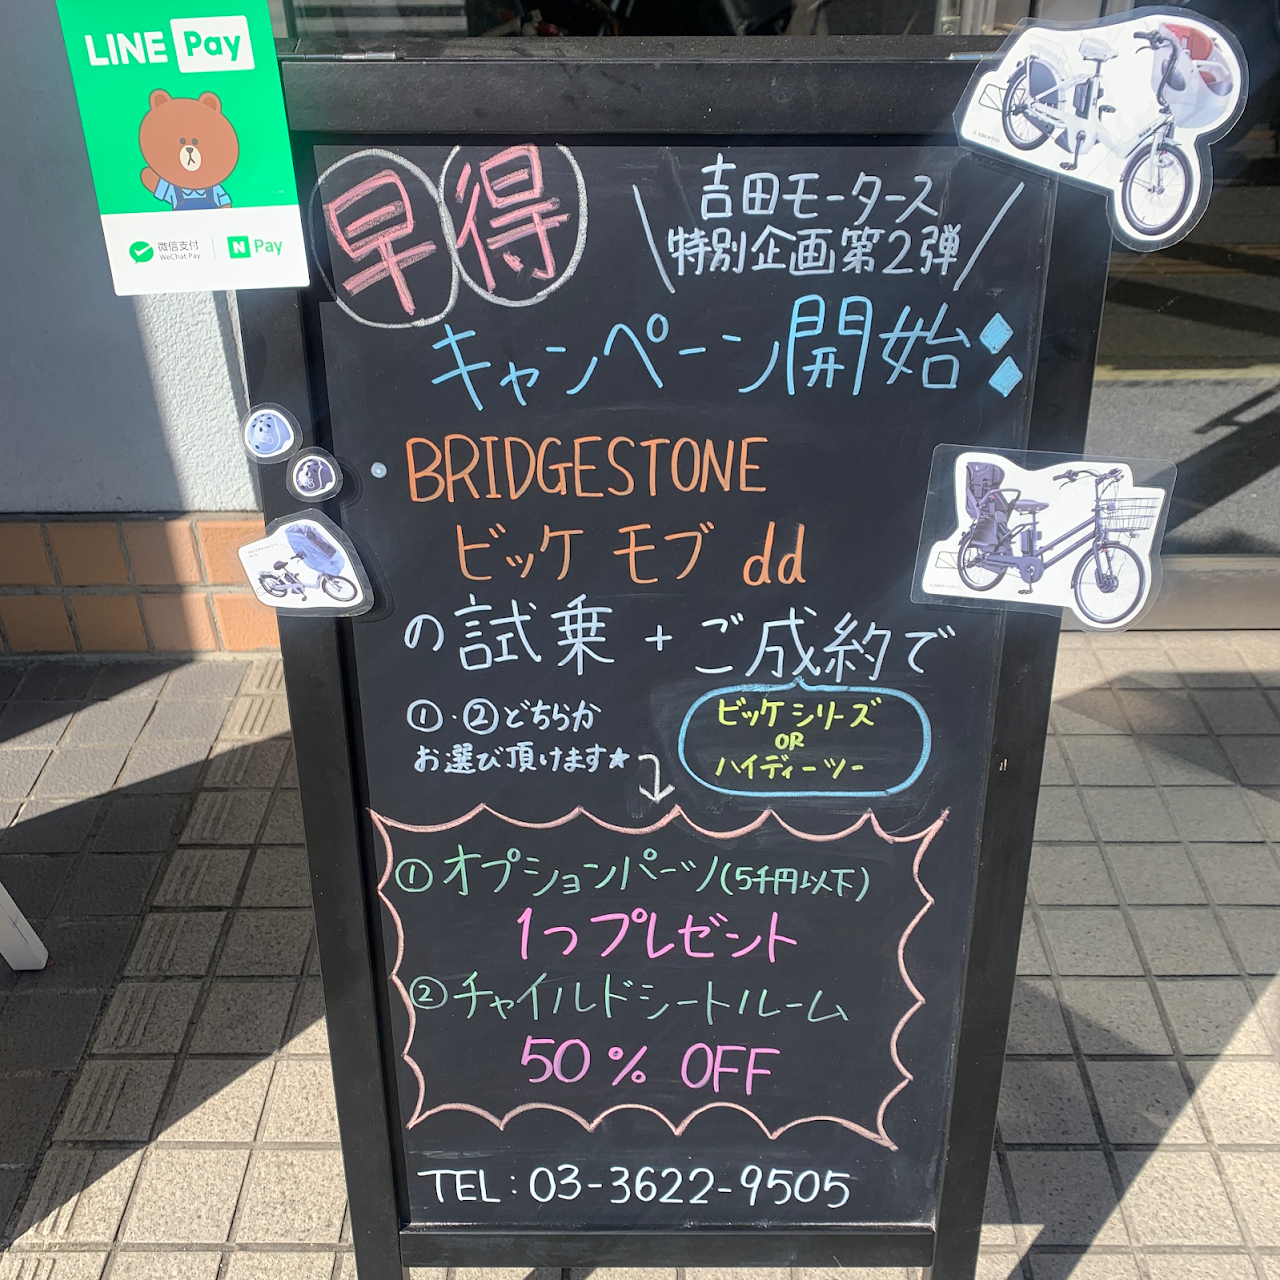 LINE Pay
微信支付
WeChat Pay
N Pay
早得
吉田モータース
特別企画第2弾
キャンペーン開始
BRIDGESTONE
ビッケ モブ dd
の試乗 + ご成約で
①・②どちらか
お選び頂けます★
ビッケシリーズ
OR
ハイディーツー
①オプションパーツ(5千円以下)
1つプレゼント
②チャイルドシートルーム
50% OFF
TEL:03-3622-9505